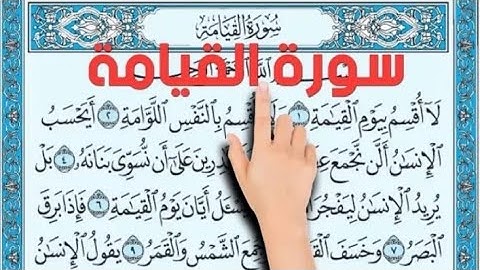 سُورَةُ القِيَامَةِ
سورة القيامة
اللَّهِ
لَآ أُقْسِمُ بِيَوْمِ ٱلْقِيَٰمَةِ ١ بِٱلنَّفْسِ ٱللَّوَّامَةِ ٢ أَيَحْسَبُ
ٱلْإِنسَٰنُ أَلَّن نَّجْمَعَ عَلَىٰٓ أَن نُّسَوِّىَ بَنَانَهُۥ ٤ بَلْ
يُرِيدُ ٱلْإِنسَٰنُ لِيَفْجُرَ أَيَّانَ يَوْمُ ٱلْقِيَٰمَةِ ٦ فَإِذَا بَرِقَ
ٱلْبَصَرُ ٧ وَخَسَفَ ٱلشَّمْسُ وَٱلْقَمَرُ ٩ يَقُولُ ٱلْإِنسَٰنُ